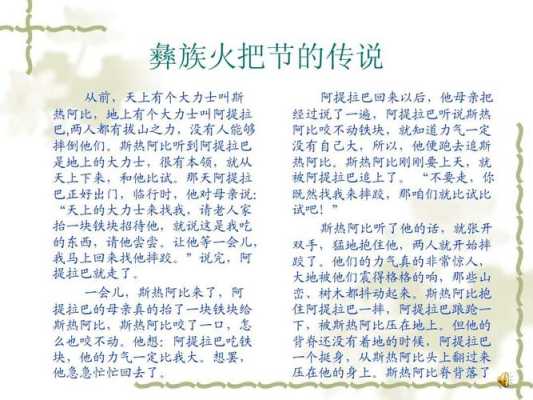 彝族火把节的传说
从前，天上有个大力士叫斯
热阿比，地上有个大力士叫阿提拉
巴,两人都有拔山之力，没有人能够
摔倒他们。斯热阿比听到阿提拉巴
是地上的大力士，很有本领，就从
天上下来，和他比试。那天阿提拉
巴正好出门，临行时，他对母亲说：
“天上的大力士来找我，请老人家
抬一块铁块招待他，就说这是我吃
的东西，请他尝尝。让他等一会儿，
我马上回来找他摔跤。”说完，阿
提拉巴就走了。
一会儿，斯热阿比来了，阿
提拉巴的母亲真的抬了一块铁块给
斯热阿比，斯热阿比咬了一口，怎
么也咬不动。他想：阿提拉巴吃铁
块，他的力气一定比我大。想罢，
他急急忙忙回去了。
阿提拉巴回来以后，他母亲把
经过说了一遍，阿提拉巴听说斯热
阿比咬不动铁块，就知道力气一定
没有自己大，所以，他便跑去追斯
热阿比。斯热阿比刚刚要上天，就
被阿提拉巴追上了。 “不要走，你
既然找我来摔跤，那咱们就比试比
试吧！”
斯热阿比听了他的话，就张开
双手，猛地抱住他，两人就开始摔
跤了。他们的力气真的非常惊人，
大地被他们震得格格的响，那些山
峦、树木都抖动起来。斯热阿比抱
住阿提拉巴一摔，阿提拉巴踉跄一
下，被斯热阿比压在地上。但他的
背脊还没有着地的时候，阿提拉巴
一个挺身，从斯热阿比头上翻过来
压在他的身上。斯热阿比脊背落了